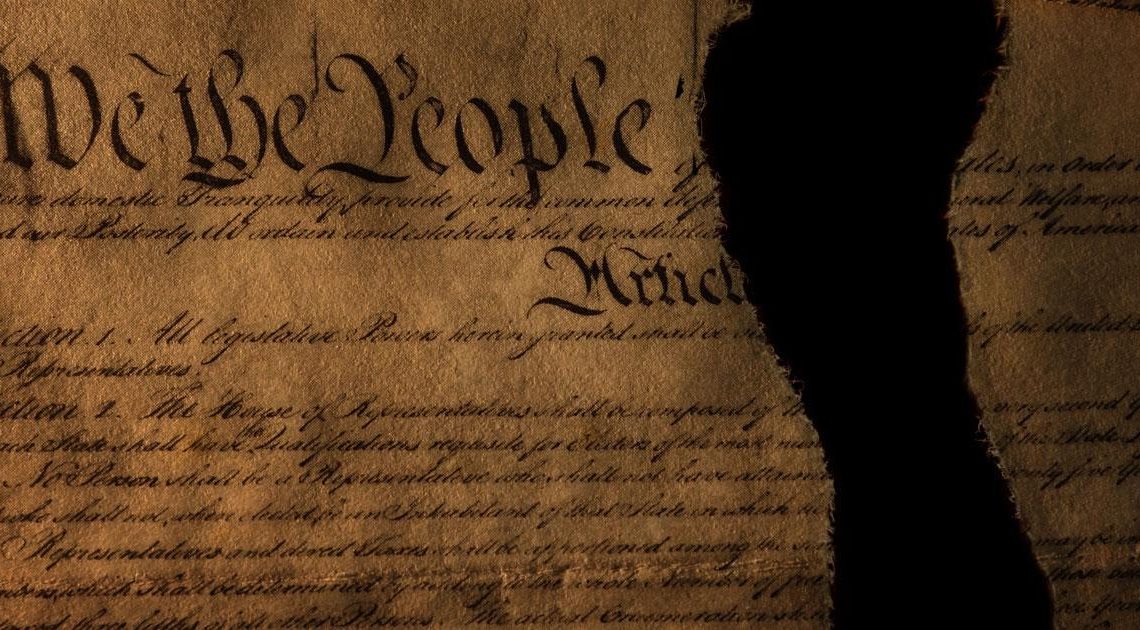 We the People
ates, in Order
domestic Tranquility, provide for the common Defe onal Welfare, an
d our Posterity, do ordain and establish this Constitution ates of America
Articl
ction. 1. All legislative Powers herein granted shall be of the United
Representatives.
ction. 2. The House of Representatives shall be composed of very second
ach State shall have the Qualifications requisite for Electors of the most num of the State
No Person shall be a Representative who shall not have attained enty five
who shall not, when elected, be an Inhabitant of that State in which
Representatives and direct Taxes shall be apportioned among the may be
bers, which shall be determined by adding to the whole Number of
three fifths of all other Persons. The actual Enumeration